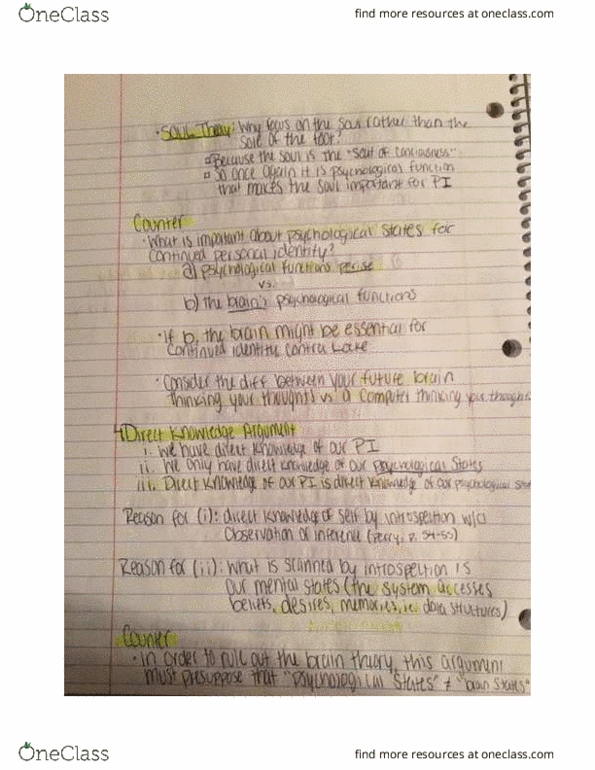 OneClass
find more resources at oneclass.com
• SOUL Theory: Why focus on the soul rather than the
sole of the foot?
Because the soul is the "seat of conciousness".
So once again it is psychological function
that makes the soul important for PI
Counter
• What is important about psychological states for
continued personal identity?
a) psychological functions perise
vs.
b) the brain's psychological functions
• if b, the brain might be essential for
continued identity contra Locke
• Consider the diff between your future brain
thinking your thoughts vs a computer thinking your thoughts
4 Direct Knowledge Argument
i. we have direct knowledge of our PI
ii. we only have direct knowledge of our psychological states
iii. Direct knowledge of our PI is direct knowledge of our psychological stat
Reason for (i): direct knowledge of self by introspection w/o
observation or inference (Perry, p. 54-55)
Reason for (ii): what is scanned by introspection is
our mental states (the system accesses
beliefs, desires, memories, i.e. data structures)
Counter
• in order to rull out the brain theory, this argument
must presuppose that "psychological states" ≠ "brain states"
OneClass
find more resources at oneclass.com